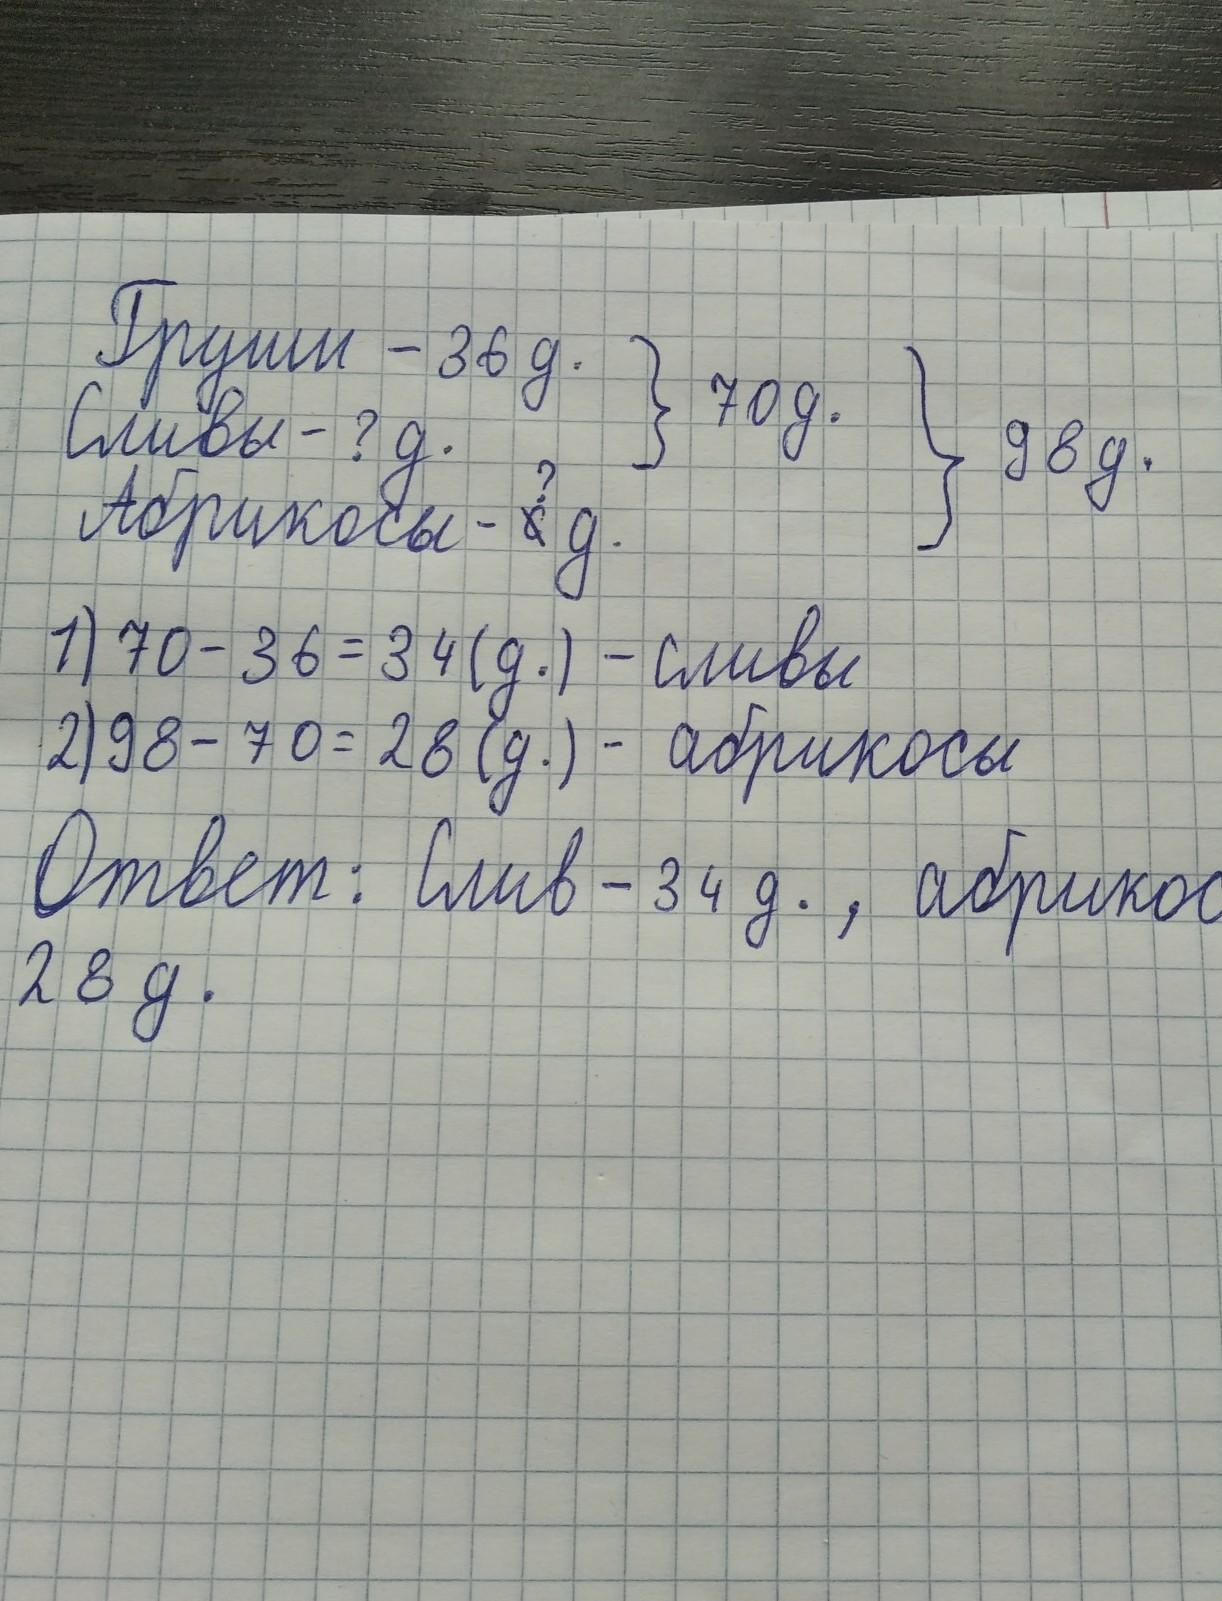 Груши - 36 д.
Сливы - ? д.
Абрикосы - ? д.
70 д.
98 д.
1) 70 - 36 = 34 (д.) - сливы
2) 98 - 70 = 28 (д.) - абрикосы
Ответ: Слив - 34 д., абрикос
28 д.